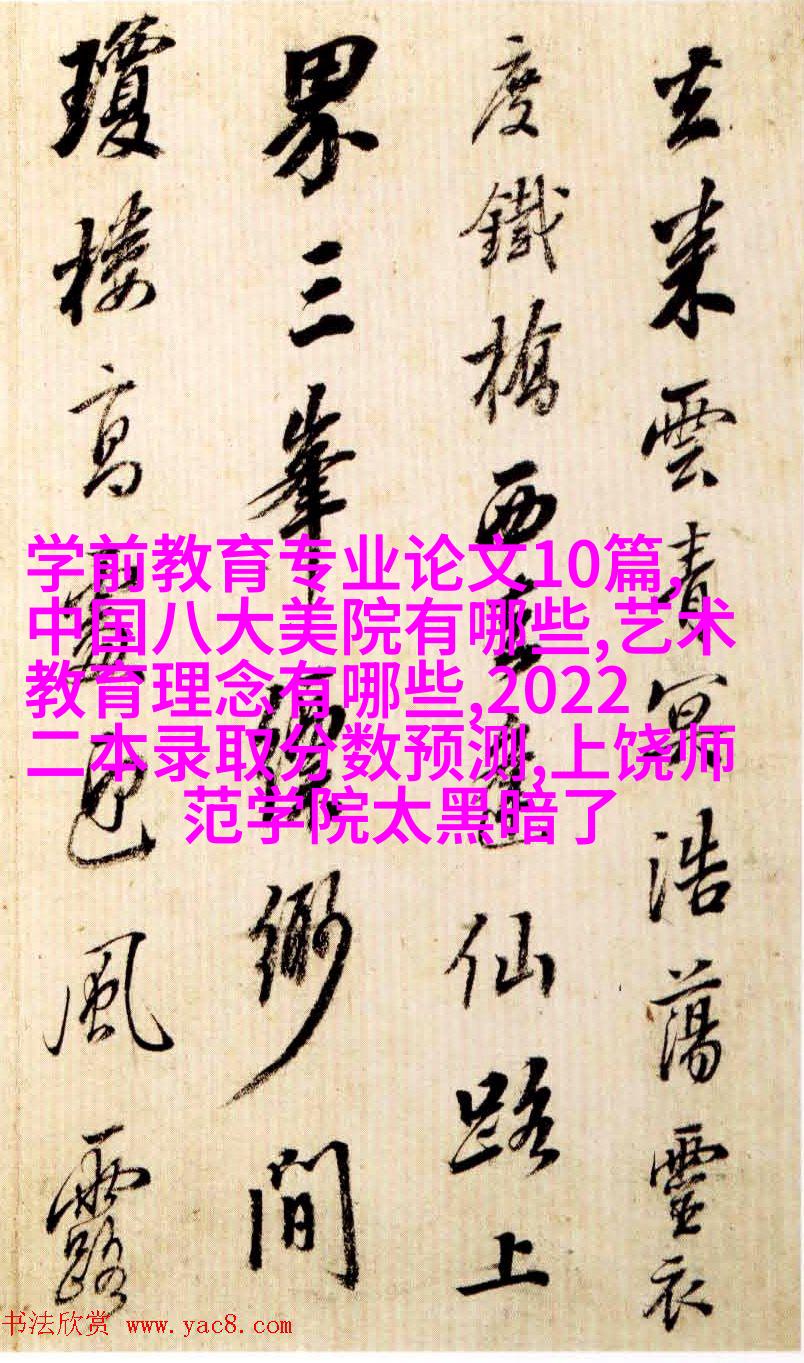 去来雲青冥浩蕩靈衣
度鐵橋西仙路上
界三峯縹緲間
瓊樓高風露
学前教育专业论文10篇,
中国八大美院有哪些,艺术
教育理念有哪些,2022
二本录取分数预测,上饶师
范学院太黑暗了
书法欣赏 www.yac8.com